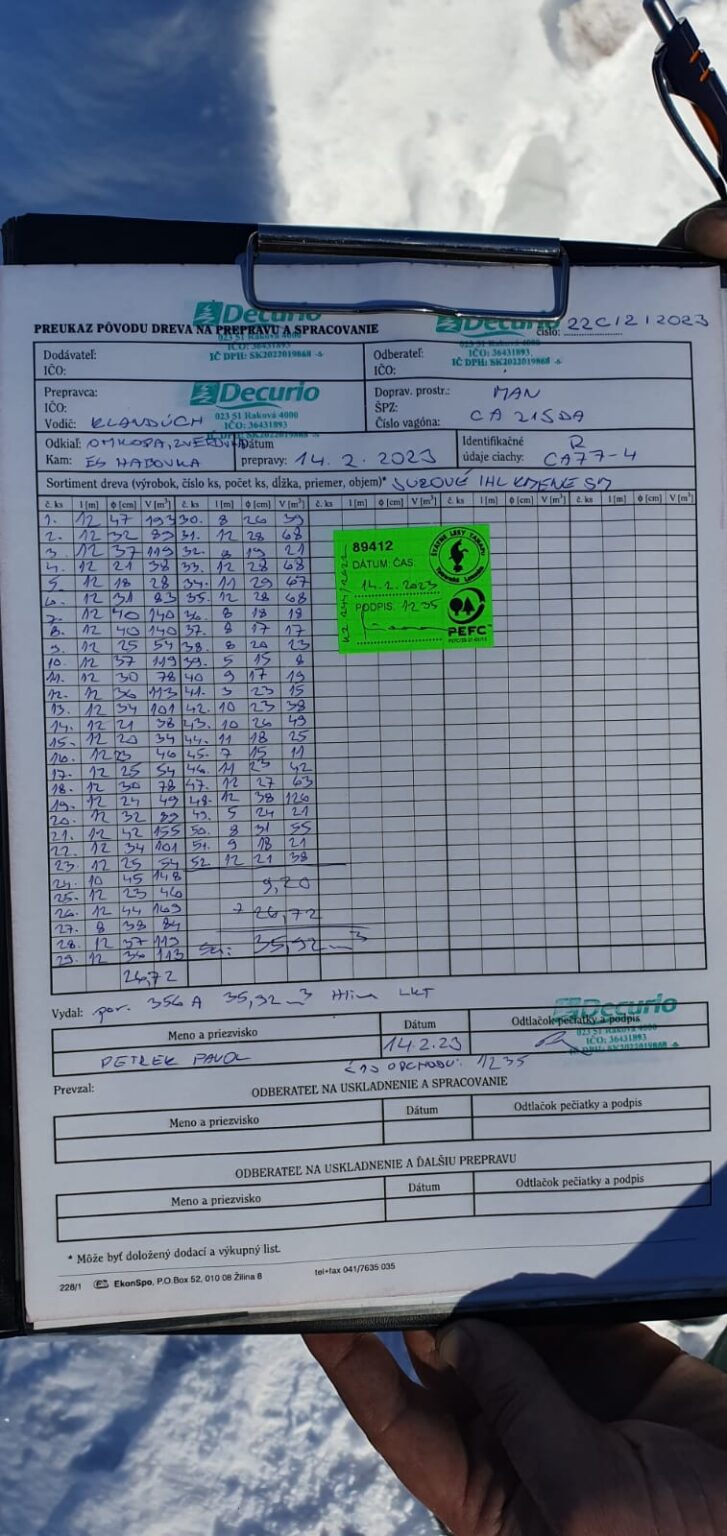 Decurio
023 51 Raková 4000
IČO: 36431893
IČ DPH: SK2022019868 -6
Decurio
023 51 Raková 4000
IČO: 36431893,
IČ DPH: SK2022019868 -6
PREUKAZ PÔVODU DREVA NA PREPRAVU A SPRACOVANIE
číslo: 22C1212023
Dodávateľ:
IČO:
Odberateľ:
IČO:
Decurio
023 51 Raková 4000
IČO: 36431893
IČ DPH: SK2022019868 -6
Prepravca:
IČO:
Vodič: KLANDÚCH
Doprav. prostr.: MAN
ŠPZ:
Číslo vagóna: CA 215DA
Odkiaľ:
Kam: ES HABOVKA
Dátum
prepravy: 14. 2. 2023
Identifikačné R
údaje ciachy: CA77-4
Sortiment dreva (výrobok, číslo ks, počet ks, dĺžka, priemer, objem)* SUROVÉ IHL KMENE SM
č. ks l [m] ϕ [cm] V [m³] č. ks l [m] ϕ [cm] V [m³] č. ks l [m] ϕ [cm] V [m³] č. ks l [m] ϕ [cm] V [m³] č. ks l [m] ϕ [cm] V [m³]
1. 12 47 193 30. 8 26 39
2. 12 32 89 31. 12 28 68
3. 12 37 119 32. 8 19 21
4. 12 21 38 33. 12 28 68
5. 12 18 28 34. 11 29 67
6. 12 31 83 35. 12 28 68
7. 12 40 140 36. 8 18 18
8. 12 40 140 37. 8 17 17
9. 12 25 54 38. 8 20 23
10. 12 37 119 39. 5 15 8
11. 12 30 78 40 9 17 19
12. 12 36 113 41. 3 23 15
13. 12 34 101 42. 10 23 38
14. 12 21 38 43. 10 26 49
15. 12 20 34 44. 11 18 25
16. 12 23 46 45. 7 15 11
17. 12 25 54 46. 11 23 42
18. 12 30 78 47. 12 27 63
19. 12 24 49 48. 12 38 126
20. 12 32 89 49. 5 24 21
21. 12 42 155 50. 8 31 55
22. 12 34 101 51. 9 18 21
23. 12 25 54 52. 12 21 38
24. 10 45 148
25. 12 23 46 9,20
26. 12 44 169 26,72
27. 8 38 84
28. 12 37 119 35,92 m³
29. 12 36 113
26,72
89412
DÁTUM: ČAS.
14. 2. 2023
PODPIS: 1235
ŠTÁTNE LESY TANAPU
Tatranská Lomnica
PEFC
Vydal: por. 356 A 35,92 m³ Hlina LKT
Meno a priezvisko
Dátum
Odtlačok pečiatky a podpis
PETREK PAVOL
14.2.23
Decurio
023 51 Raková 4000
IČO: 36431893
IČ DPH: SK2022019868 -6
ČAS ODCHODU: 1235
Prevzal:
ODBERATEĽ NA USKLADNENIE A SPRACOVANIE
Meno a priezvisko
Dátum
Odtlačok pečiatky a podpis
ODBERATEĽ NA USKLADNENIE A ĎALŠIU PREPRAVU
Meno a priezvisko
Dátum
Odtlačok pečiatky a podpis
* Môže byť doložený dodací a výkupný list.
228/1 EkonSpo, P.O.Box 52, 010 08 Žilina 8 tel+fax 041/7635 035